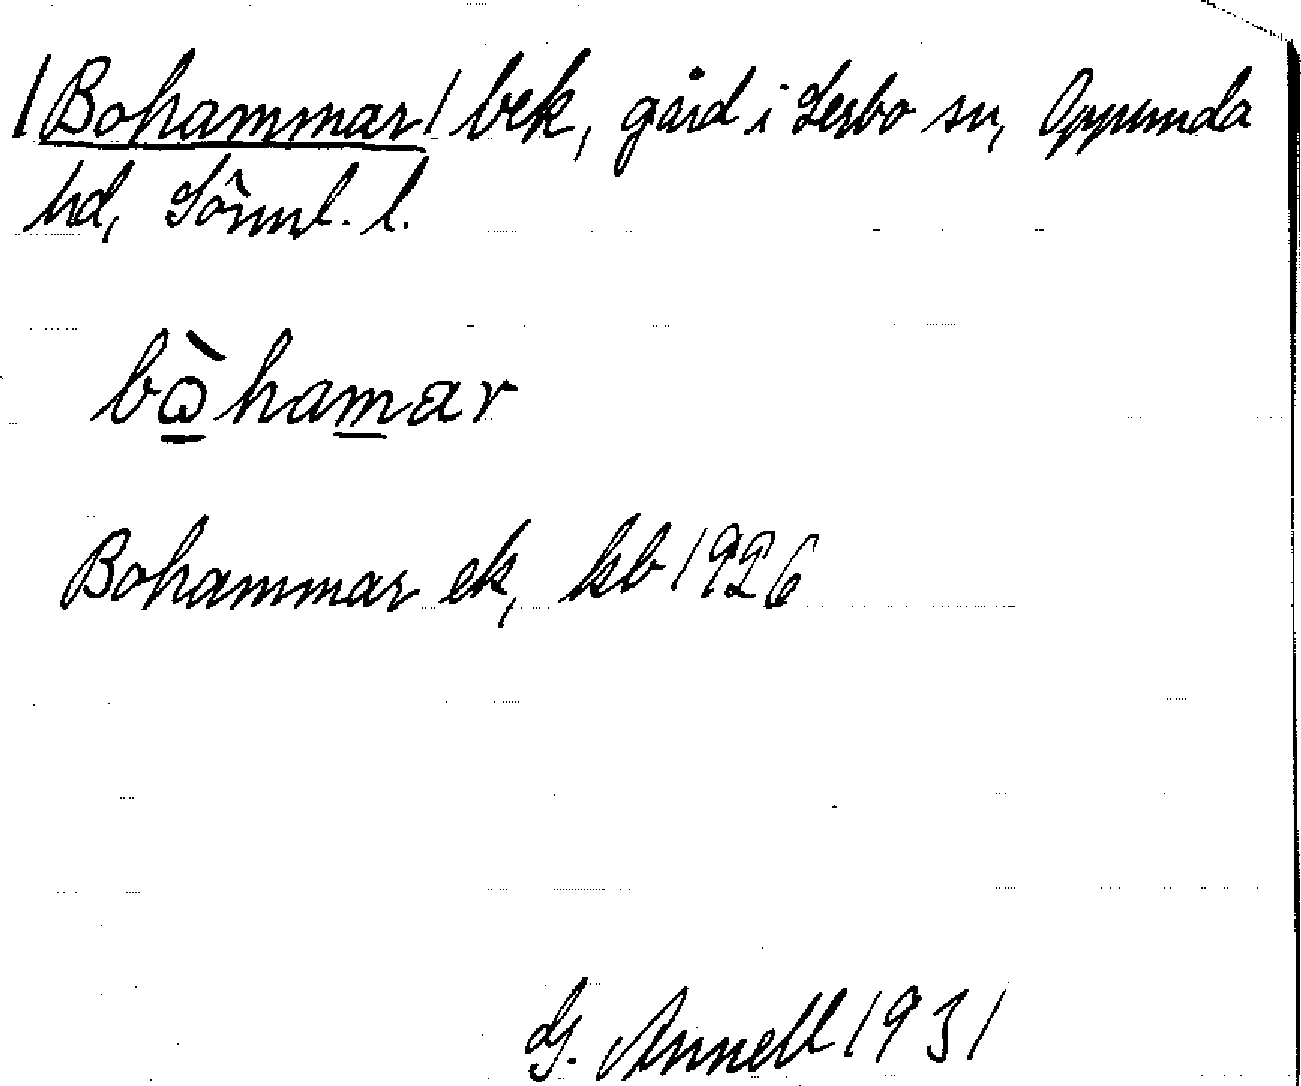 /Bohammar/ bek, gård i Lerbo sn, Oppunda
hd, Sörml. l.
bὼhamar
Bohammar ek, kb 1926
G. Annell 1931